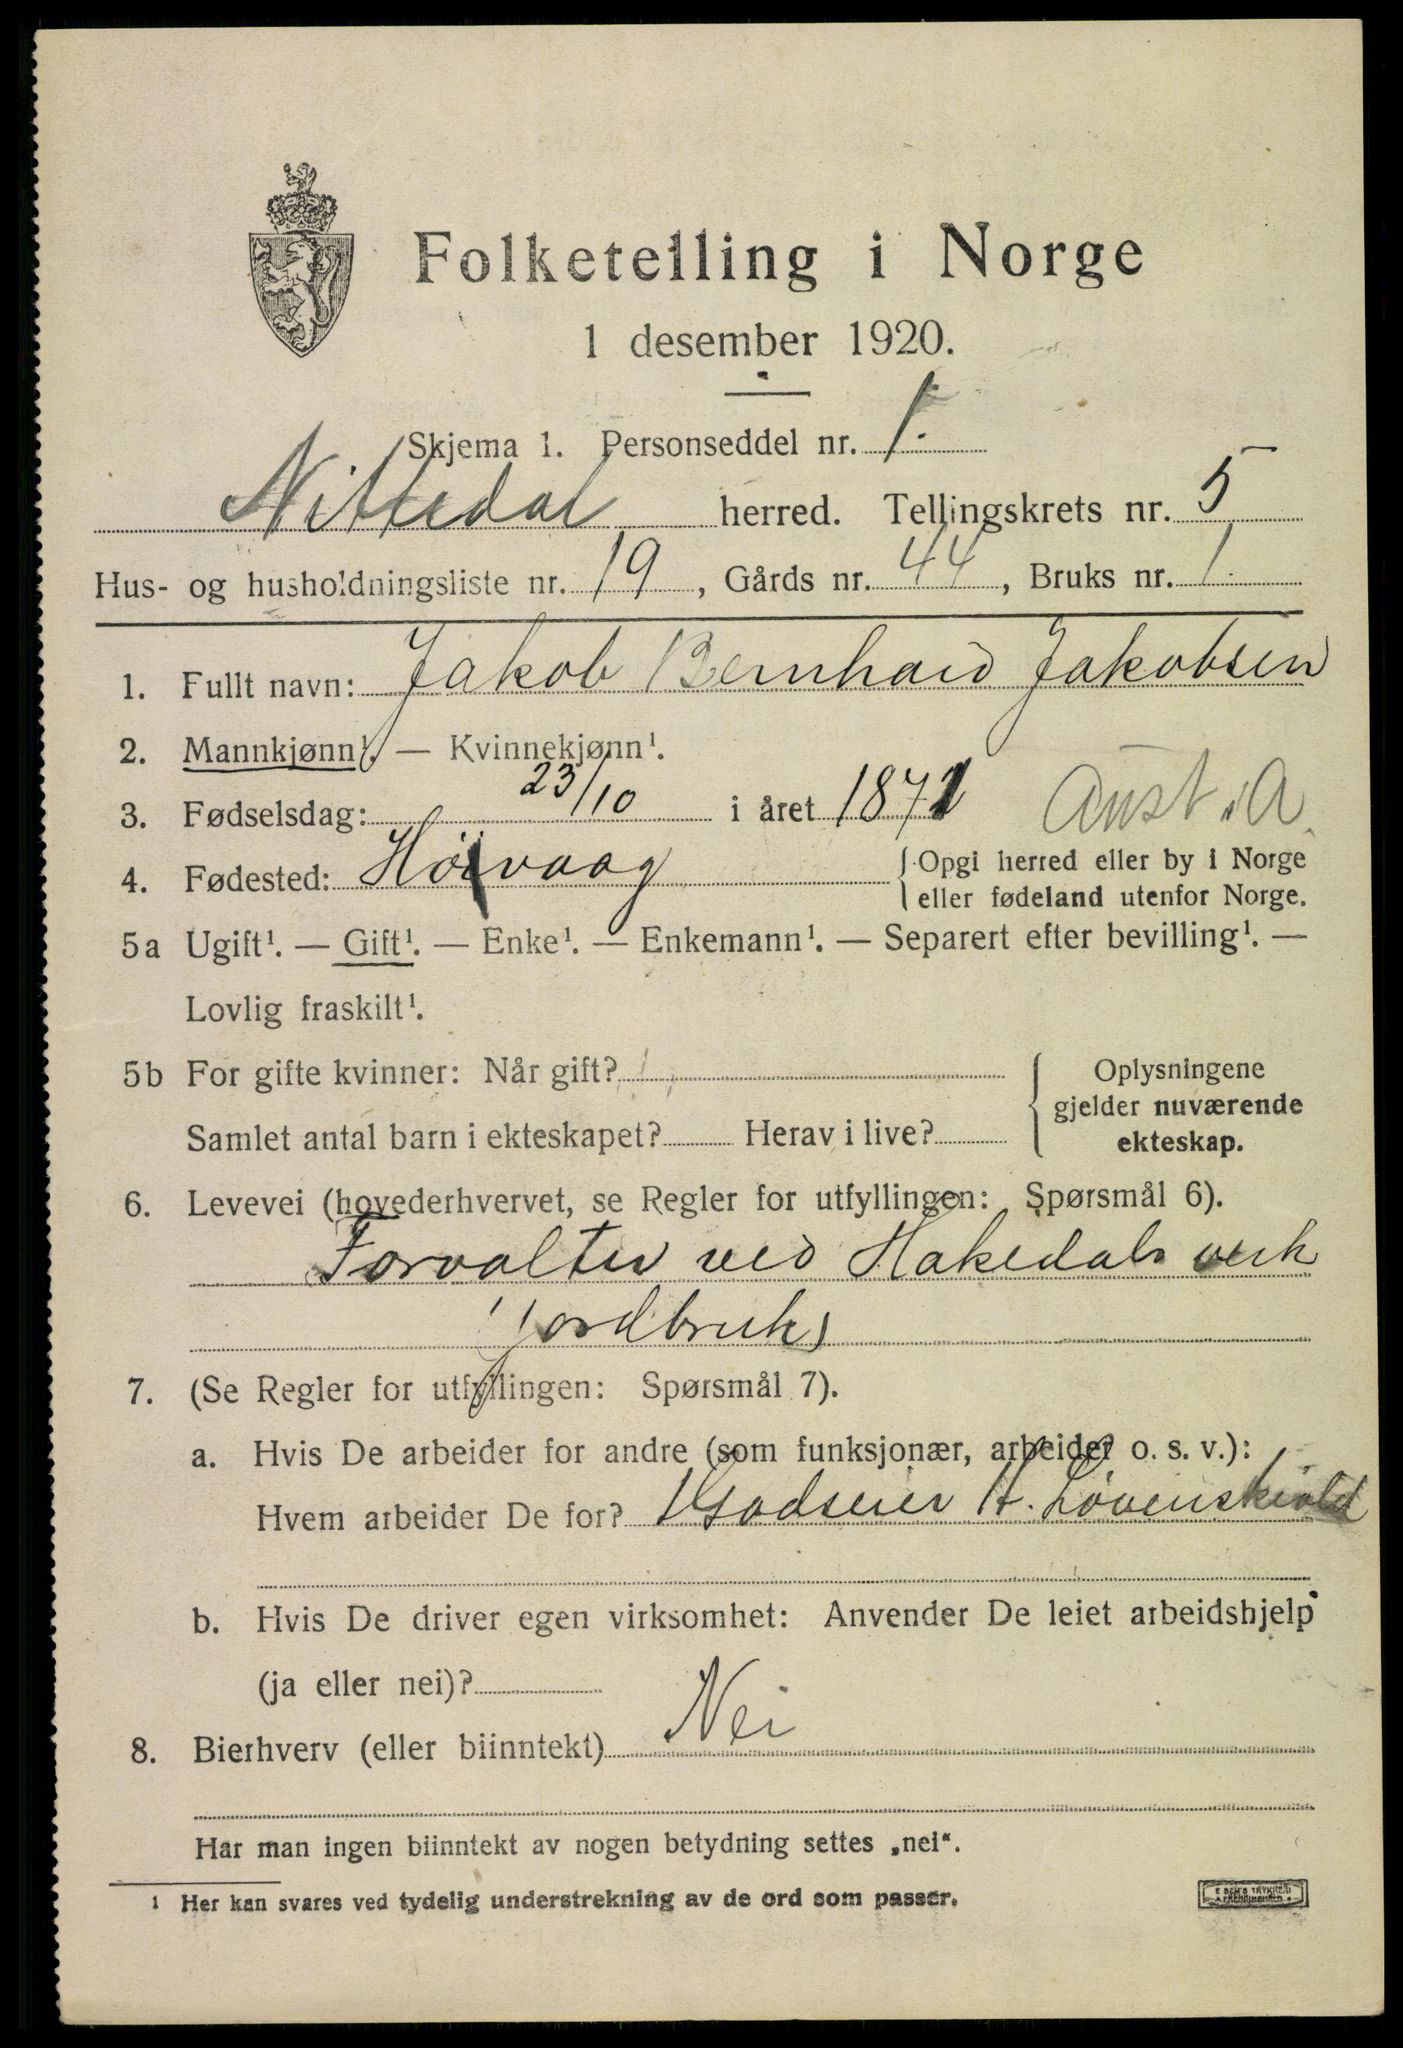 Folketelling i Norge
1 desember 1920.
Skjema 1. Personseddel nr. 1.
Nittedal herred. Tellingskrets nr. 5
Hus- og husholdningsliste nr. 19, Gårds nr. 44, Bruks nr. 1.
1. Fullt navn: Jakob Bernhard Jakobsen
2. Mannkjønn¹. — Kvinnekjønn¹.
3. Fødselsdag: 23/10 i året 1871 Aust. A.
4. Fødested: Høivaag { Opgi herred eller by i Norge
eller fødeland utenfor Norge.
5a Ugift¹. — Gift¹. — Enke¹. — Enkemann¹. — Separert efter bevilling¹. —
Lovlig fraskilt¹.
5b For gifte kvinner: Når gift?
Samlet antal barn i ekteskapet? Herav i live?
Oplysningene
gjelder nuværende
ekteskap.
6. Levevei (hovederhvervet, se Regler for utfyllingen: Spørsmål 6).
Forvalter ved Hakedals verk
Jordbruks
7. (Se Regler for utfyllingen: Spørsmål 7).
a. Hvis De arbeider for andre (som funksjonær, arbeider o. s. v.):
Hvem arbeider De for? Godseier H. Løvenskiold
b. Hvis De driver egen virksomhet: Anvender De leiet arbeidshjelp
(ja eller nei)?
8. Bierhverv (eller biinntekt) Nei
Har man ingen biinntekt av nogen betydning settes „nei“.
¹ Her kan svares ved tydelig understrekning av de ord som passer.